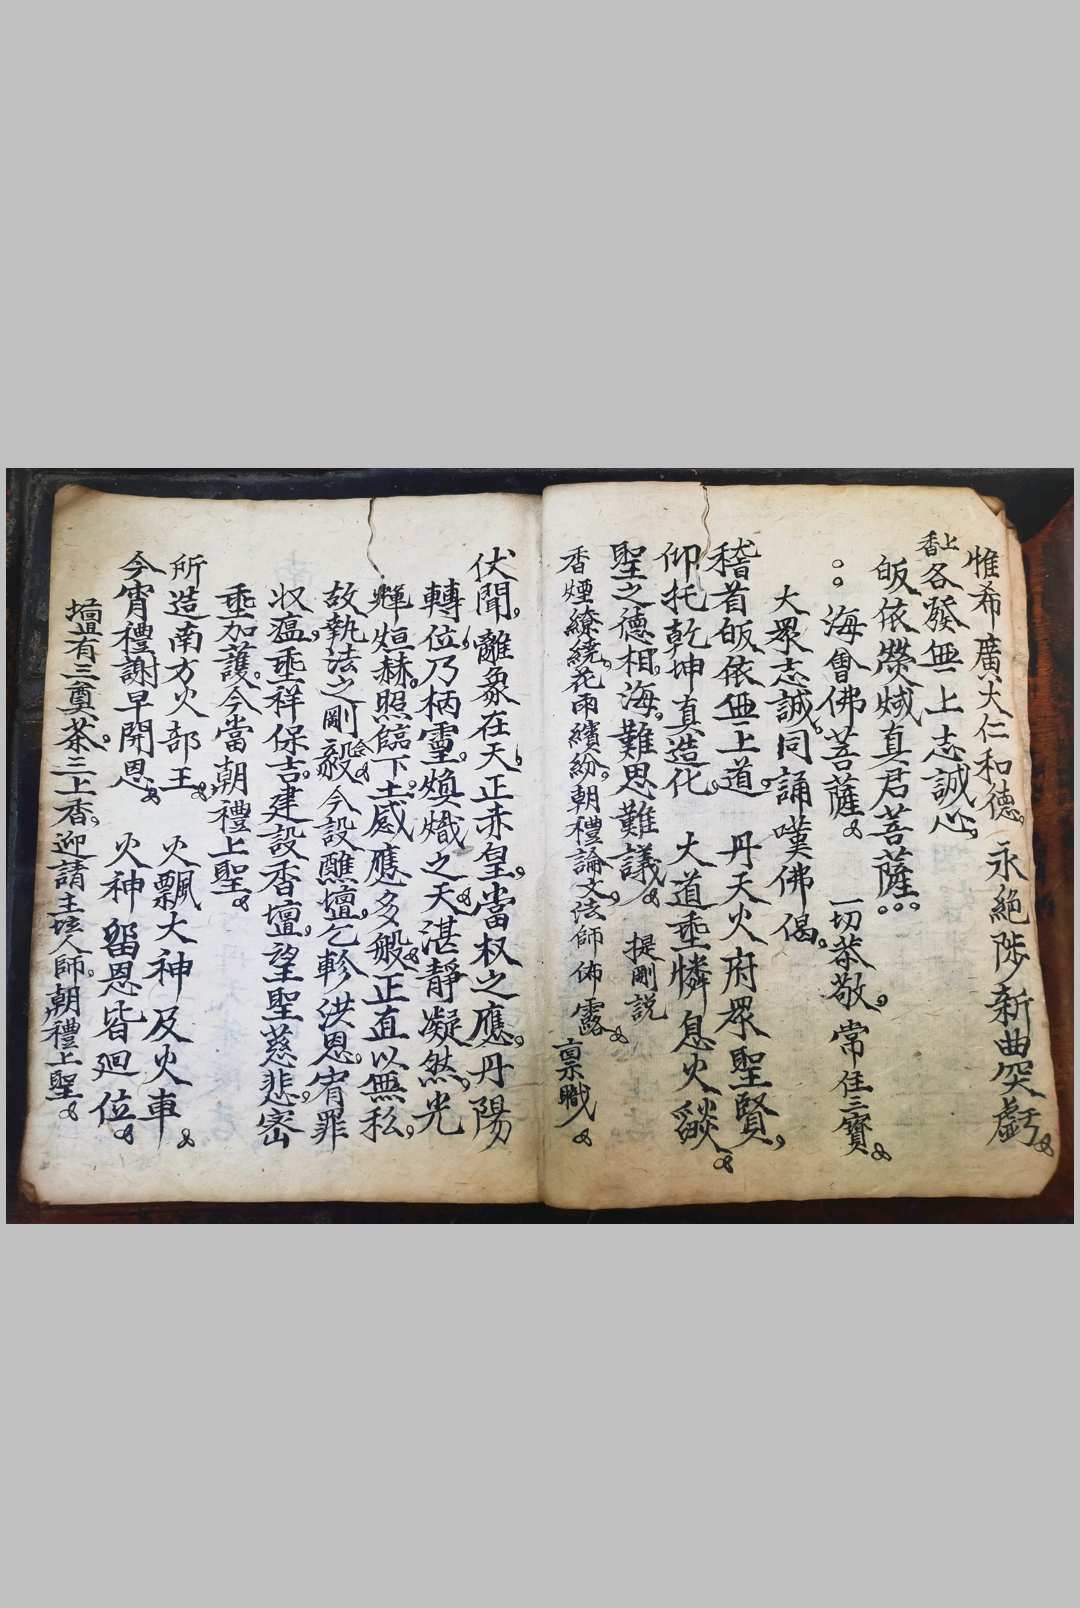 惟希廣大仁和德。永絕陟新曲突虧
上香各發無上志誠心。
皈依熒惑真君菩薩。。。
。。海會佛菩薩 一切恭敬。常住三寶
大眾志誠。同誦嘆佛偈。
稽首皈依無上道。丹天火府眾聖賢。
仰托乾坤真造化。大道垂憐息火燄
聖之德相。海難思難議 提剛説
香煙繚繞。花雨繽紛。朝禮論文。法師佈露 稟職
伏聞。離象在天。正赤皇。當权之應。丹陽
轉位。乃柄靈。煥熾之天。湛靜凝然。光
輝烜赫。照臨下土。感應多般。正直以無私。
故執法之剛毅 今設醮壇。乞軫洪恩。宥罪
収瘟。垂祥保吉。建設香壇。望聖慈悲。密
垂加護。今當朝禮上聖
所造南方火部王。火飄大神及火車
今宵禮謝早開恩 火神留恩皆迴位
壇有三奠茶。三上香。迎請主垓人師。朝禮上聖